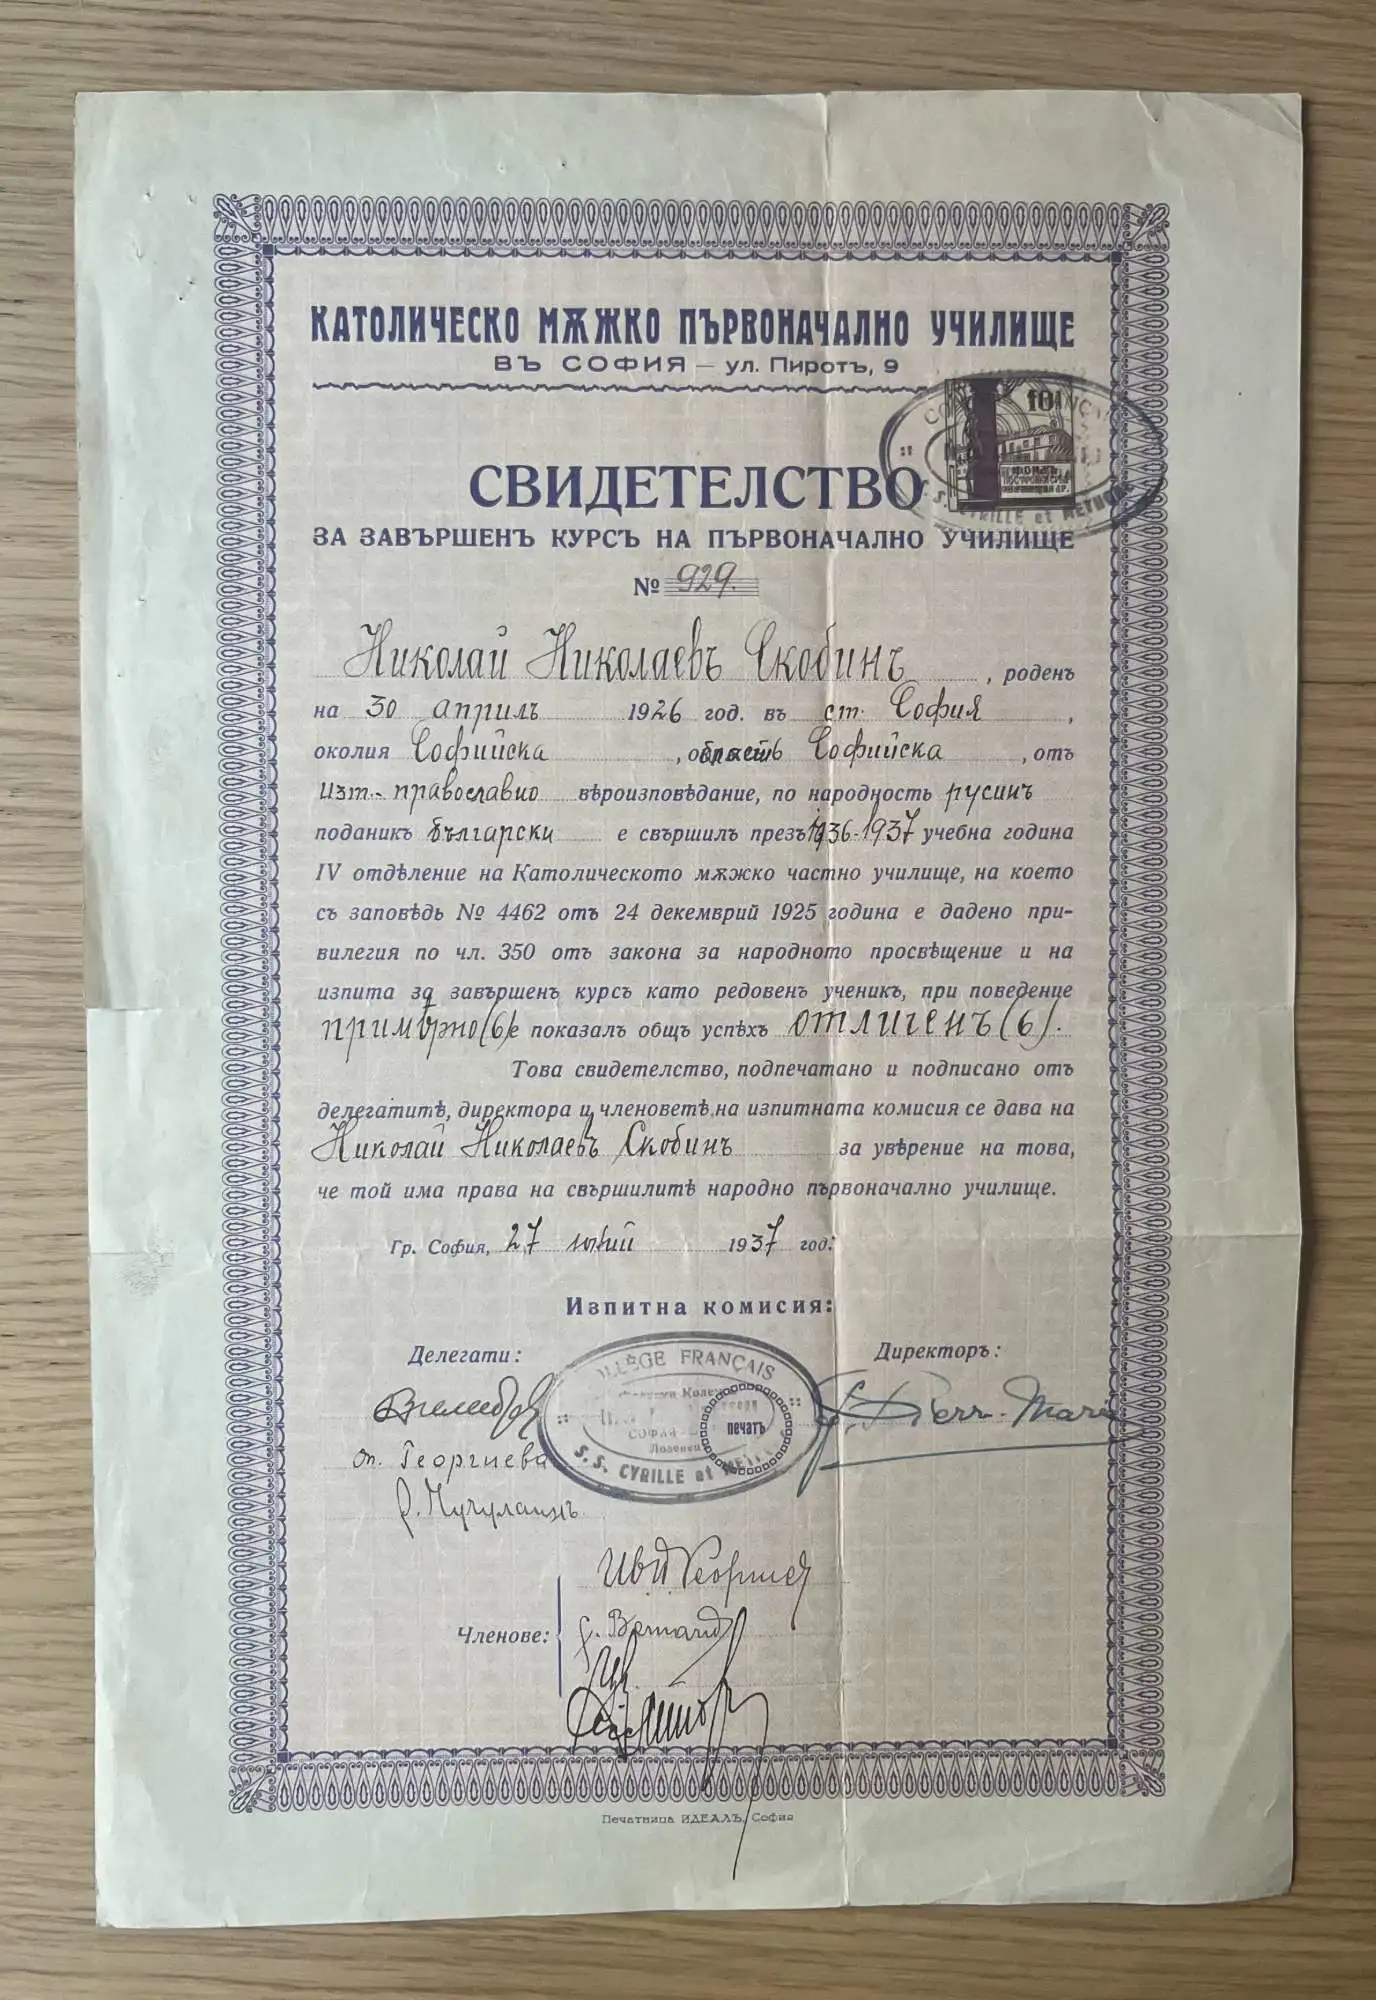 КАТОЛИЧЕСКО МѪЖКО ПЪРВОНАЧАЛНО УЧИЛИЩЕ
ВЪ СОФИЯ — ул. Пиротъ, 9
10
СВИДЕТЕЛСТВО
S.S. CYRILLE et METHODE
ЗА ЗАВЪРШЕНЪ КУРСЪ НА ПЪРВОНАЧАЛНО УЧИЛИЩЕ
№ 929.
Николай Николаевъ Скобинъ, роденъ
на 30 априлъ 1926 год. въ ст. София,
околия Софийска, область Софийска, отъ
изт.-православно вѣроизповѣдание, по народность русинъ
поданикъ български е свършилъ презъ 1936-1937 учебна година
IV отдѣление на Католическото мѫжко частно училище, на което
съ заповѣдь № 4462 отъ 24 декемврий 1925 година е дадено при-
вилегия по чл. 350 отъ закона за народното просвѣщение и на
изпита за завършенъ курсъ като редовенъ ученикъ, при поведение
примѣрно (6) е показалъ общъ успѣхъ отличенъ (6).
Това свидетелство, подпечатано и подписано отъ
делегатитѣ, директора и членоветѣ на изпитната комисия се дава на
Николай Николаевъ Скобинъ за увѣрение на това,
че той има права на свършилитѣ народно първоначално училище.
Гр. София, 27 юний 1937 год.
Изпитна комисия:
Делегати:
Директоръ:
COLLÈGE FRANÇAIS
печатъ
S.S. CYRILLE et
Pierr-Marie
Георгиева
Членове:
Bernard
Печатница ИДЕАЛЪ, София